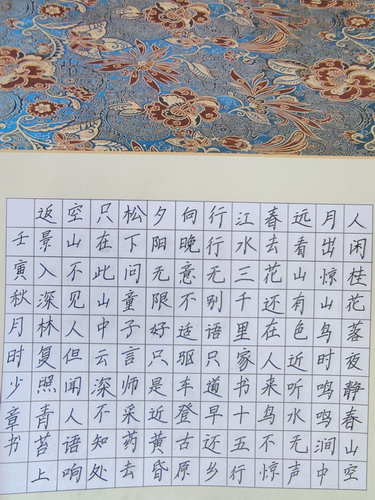 人闲桂花落夜静春山空
月出惊山鸟时鸣鸣涧中
远看山有色近听水无声
春去花还在人来鸟不惊
江水三千里家书十五行
行行无别语只道早还乡
向晚意不适驱车登古原
夕阳无限好只是近黄昏
松下问童子言师采药去
只在此山中云深不知处
空山不见人但闻人语响
返景入深林复照青苔上
壬寅秋月时少章书